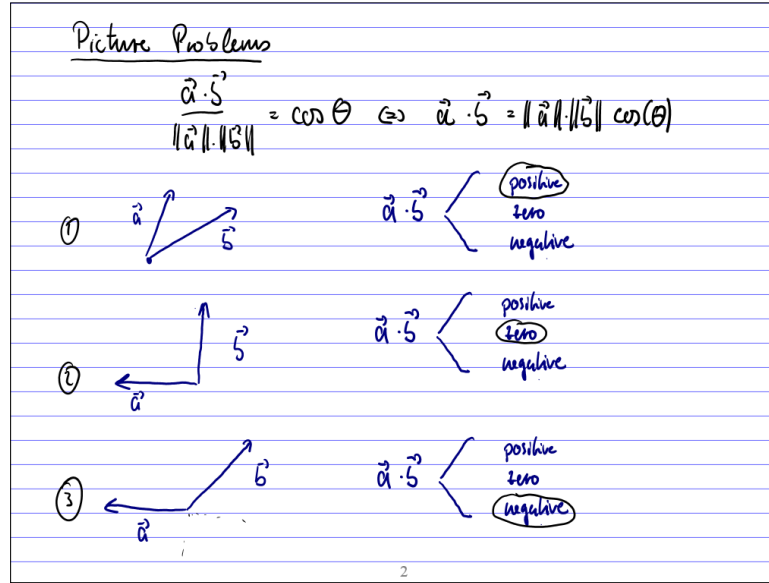 Picture Problems
a⃗ · b⃗ / ‖a⃗‖·‖b⃗‖ = cos θ ⇔ a⃗ · b⃗ = ‖a⃗‖·‖b⃗‖ cos(θ)
① a⃗ b⃗ a⃗ · b⃗ positive
zero
negative
② a⃗ b⃗ a⃗ · b⃗ positive
zero
negative
③ a⃗ b⃗ a⃗ · b⃗ positive
zero
negative
2